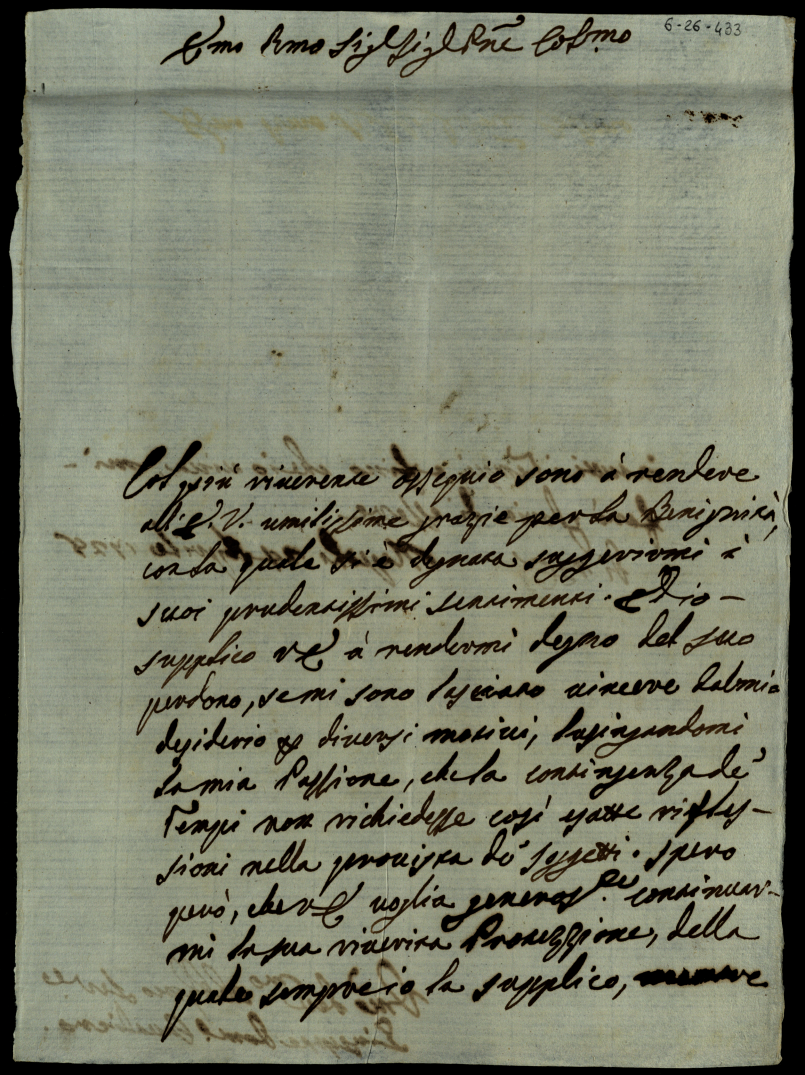 6-26-433
Emo Rmo Sigr Sigr Pne Colmo
Col più riverente ossequio sono à rendere
all'E. V. umilissime grazie per la Benignità,
con la quale si è degnata suggerirmi i
suoi prudentissimi sentimenti. Ed io
supplico VE à rendermi degno del suo
perdono, se mi sono lasciato vincere dal mio
desiderio p diversi motivi, lusingandomi
la mia Passione, che la contingenza de'
Tempi non richiedesse così esatte rifles-
sioni nella provista de' soggetti. Spero
però, che VE voglia generoste continuar-
mi la sua riverita Protezzione, della
quale sempre io la supplico,